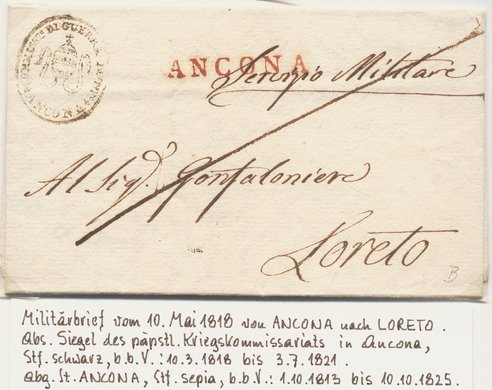 DI GUERRA
ANCONA
ANCONA
Servizio Militare
Al Sigr. Gonfaloniere
Loreto
B
Militärbrief vom 10. Mai 1818 von ANCONA nach LORETO.
Abs. Siegel des päpstl. Kriegskommissariats in Ancona,
Stf. schwarz, b.b.V.: 10.3.1818 bis 3.7.1821.
Abg. St. ANCONA, Stf. sepia, b.b.V.: 1.10.1813 bis 10.10.1825.